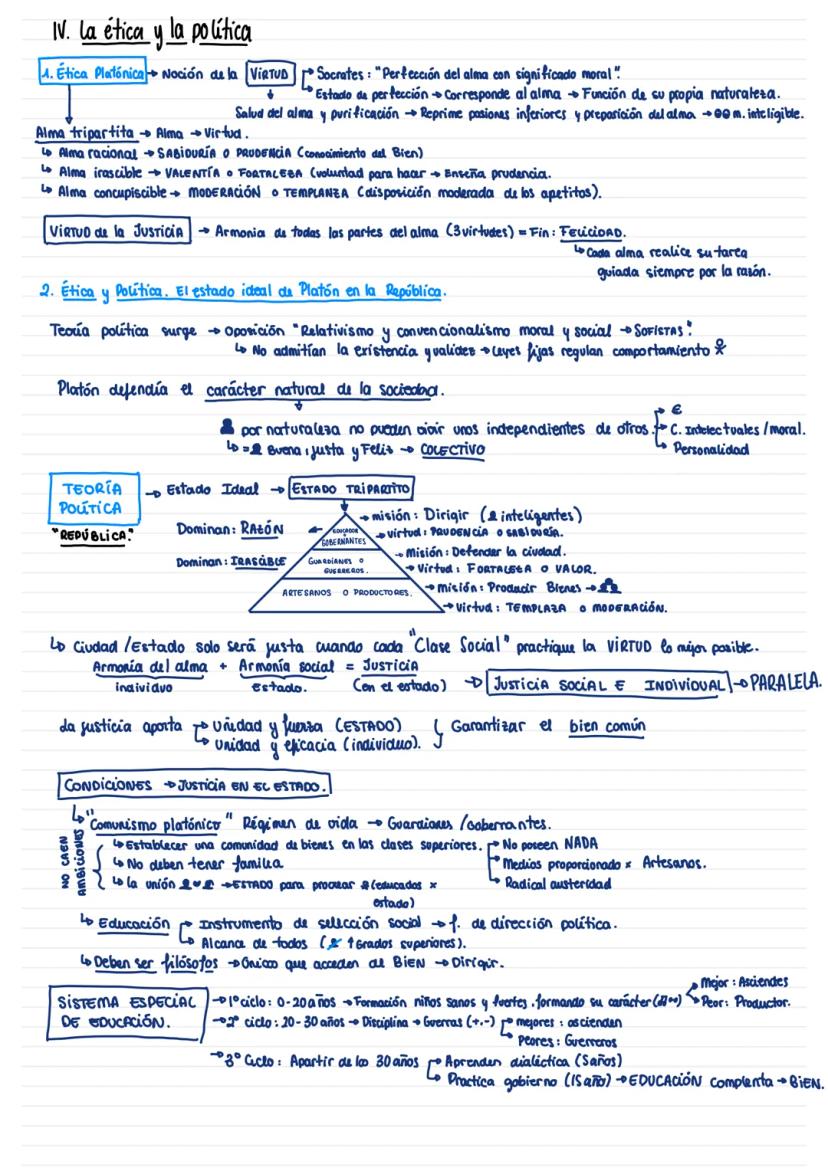 IV. La ética y la política
1. Ética Platónica → Noción de la VIRTUD → Socrates: "Perfección del alma con significado moral".
→ Estado de perfección → Corresponde al alma → Función de su propia naturaleza.
Salud del alma y purificación → Reprime pasiones inferiores y preparación del alma → m. inteligible.
Alma tripartita → Alma → Virtud.
↳ Alma racional → SABIDURÍA O PRUDENCIA (conocimiento del Bien)
↳ Alma irascible → VALENTÍA O FORTALEZA (voluntad para hacer → Enseña prudencia.
↳ Alma concupiscible → MODERACIÓN O TEMPLANZA (disposición moderada de los apetitos).
VIRTUD de la JUSTICIA → Armonia de todas las partes del alma (3 virtudes) = Fin: FELICIDAD.
↳ Cada alma realice su tarea
guiada siempre por la razón.
2. Ética y Política. El estado ideal de Platón en la República.
Teoría política surge → Oposición "Relativismo y convencionalismo moral y social → SOFISTAS".
↳ No admitían la existencia y validez → Leyes fijas regulan comportamiento
Platón defendía el carácter natural de la sociedad.
por naturaleza no pueden vivir unos independientes de otros. → €
→ C. Intelectuales / moral.
→ Personalidad
↳ = Buena, justa y Feliz → COLECTIVO
TEORÍA POLÍTICA → Estado Ideal → ESTADO TRIPARTITO
"REPÚBLICA."
→ misión: Dirigir ( inteligentes)
Dominan: RAZÓN ← EDUCADOR GOBERNANTES → virtud: PRUDENCIA O SABIDURÍA.
→ Misión: Defender la ciudad.
Dominan: IRASCIBLE GUARDIANES O GUERREROS. → Virtud: FORTALEZA O VALOR.
→ misión: Producir Bienes →
ARTESANOS O PRODUCTORES. → Virtud: TEMPLAZA O MODERACIÓN.
↳ Ciudad / Estado solo será justa cuando cada "Clase Social" practique la VIRTUD lo mejor posible.
Armonía del alma + Armonía social = JUSTICIA
individuo Estado. (en el estado) → JUSTICIA SOCIAL E INDIVIDUAL → PARALELA.
La justicia aporta → Unidad y fuerza (ESTADO) } Garantizar el bien común
↳ Unidad y eficacia (individuo).
CONDICIONES → JUSTICIA EN EL ESTADO.
↳ "Comunismo platónico" Régimen de vida → Guardianes / Gobernantes.
NO CAEN AMBICIONES
↳ Establecer una comunidad de bienes en las clases superiores. → No poseen NADA
↳ No deben tener familia → Medios proporcionado x Artesanos.
→ Radical austeridad
↳ La unión → ESTADO para procrear (educados x
estado)
↳ Educación → Instrumento de selección social → f. de dirección política.
↳ Alcance de todos ( ↑ Grados superiores).
↳ Deben ser filósofos → Únicos que acceden al BIEN → Dirigir.
SISTEMA ESPECIAL DE EDUCACIÓN.
→ 1º ciclo: 0-20 años → Formación niños sanos y fuertes. formando su carácter → Mejor: Asciendes
→ Peor: Productor.
→ 2º ciclo: 20-30 años → Disciplina → Guerras (+,-) → mejores: ascienden
Peores: Guerreros
→ 3º Ciclo: Apartir de los 30 años → Aprenden dialéctica (5 años)
↳ Practica gobierno (15 año) → EDUCACIÓN complenta → BIEN.